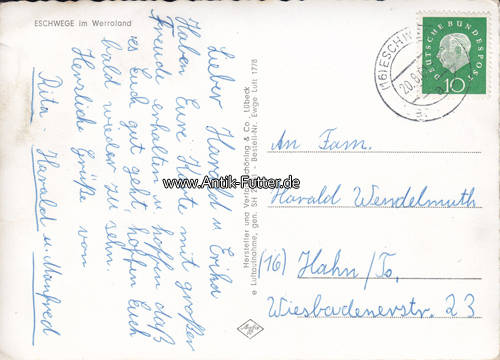 ESCHWEGE im Werraland
Lieber Harald u Erika
Haben Eure Karte mit großer
Freude erhalten u. hoffen daß
es Euch gut geht, hoffen Euch
bald wieder zu sehn.
Herzliche Grüße von
Rita - Harald u. Manfred
Hersteller und Verlag Schöning & Co., Lübeck
Luftaufnahme, gen. SH - Bestell-Nr. Ewge Luft 1778
www.Antik-Futter.de
(16) ESCHW
20.8.
DEUTSCHE BUNDESPOST
10
An Fam.
Harald Wendelmuth
(16) Hahn/Ts,
Wiesbadenerstr. 23